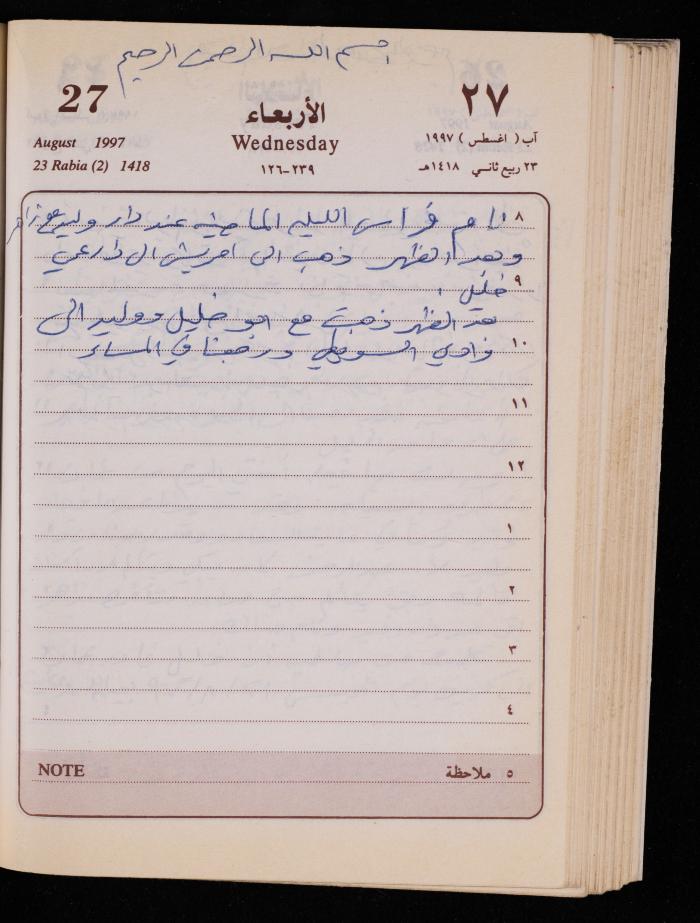 بسم الله الرحمن الرحيم
27 ٢٧
الأربعاء
August 1997 Wednesday آب ( اغسطس ) ١٩٩٧
23 Rabia (2) 1418 ٢٣٩-١٢٦ ٢٣ ربيع ثاني ١٤١٨هـ
٨ نام فراس الليلة الماضية عند دار وليد
وبعد الظهر ذهب الى
٩ خليل .
بعد الظهر ذهبت مع ابو خليل ووليد الى
١٠ وادي ورجعنا في المساء
١١
١٢
١
٢
٣
٤
NOTE ٥ ملاحظة